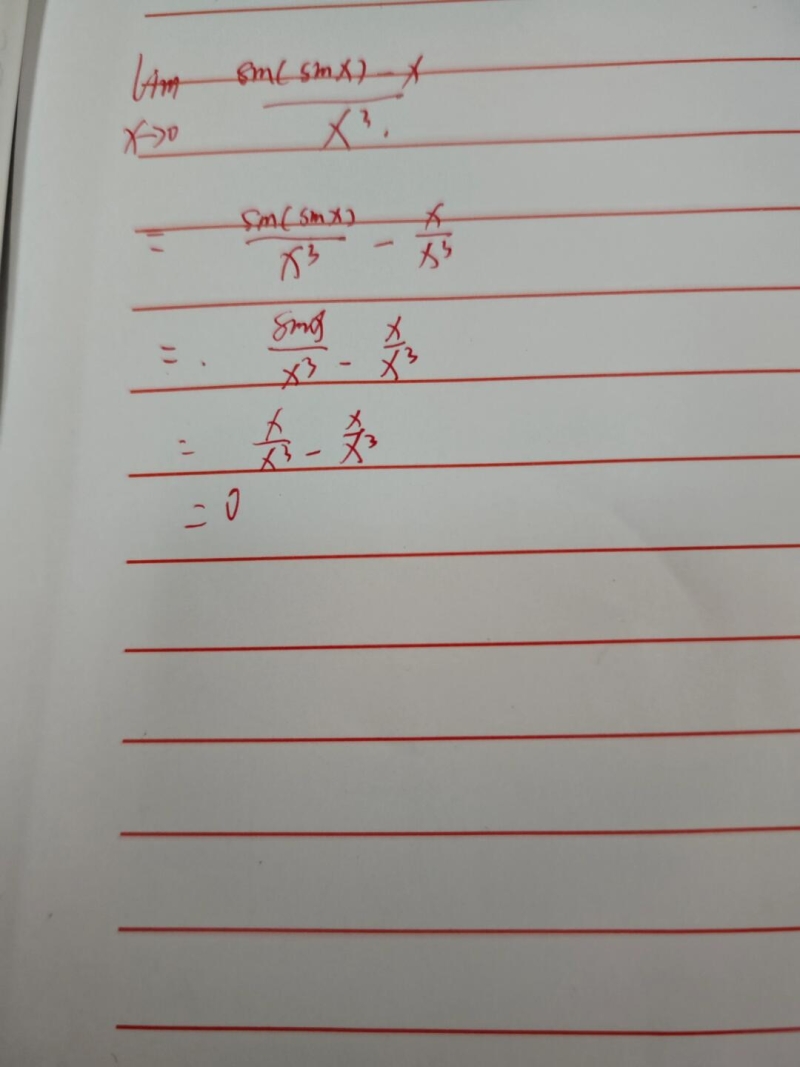 lim sin(sinx) - x
x→0 x³.
= sin(sinx)/x³ - x/x³
= . sinx/x³ - x/x³
= x/x³ - x/x³
= 0